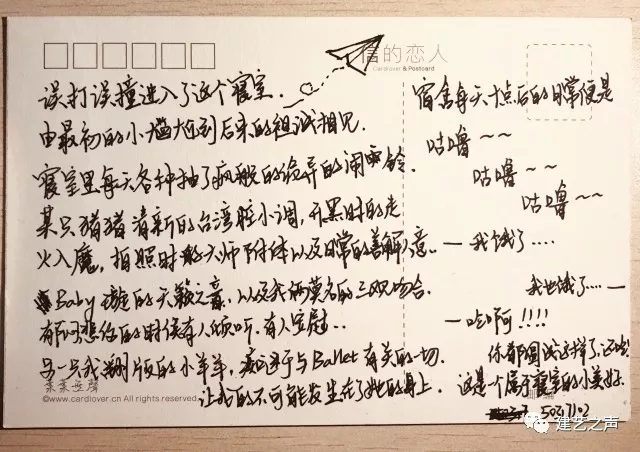 信的恋人
Cardlover & Postcard
误打误撞进入了这个寝室.
由最初的小尴尬到后来的坦诚相见.
寝室里每天各种抽了疯般的诡异的闹铃.
某只猪猪清新的台湾腔小调,开黑时的走
火入魔,拍照时大师附体以及日常的善解人意..
Baby 璇的天籁之音,以及我俩莫名的三观吻合.
有所想你的时候有人倾听.有人安慰..
另一只我翻版的小羊羊,痴迷于与Ballet有关的一切.
让我的不可能发生在了她的身上.
©www.cardlover.cn All rights reserved.
宿舍每天十点后的日常便是
咕噜~~
咕噜~~
咕噜~~
—我饿了....
我也饿了....—
—吃啊!!!!
你都圆成这样了,还吃
这是一个属于寝室的小美好.
503 17102
建艺之声